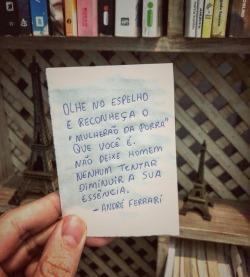 OLHE NO ESPELHO
E RECONHEÇA O
"MULHERÃO DA PORRA"
QUE VOCÊ É.
NÃO DEIXE HOMEM
NENHUM TENTAR
DIMINUIR A SUA
ESSÊNCIA.
- ANDRÉ FERRARI